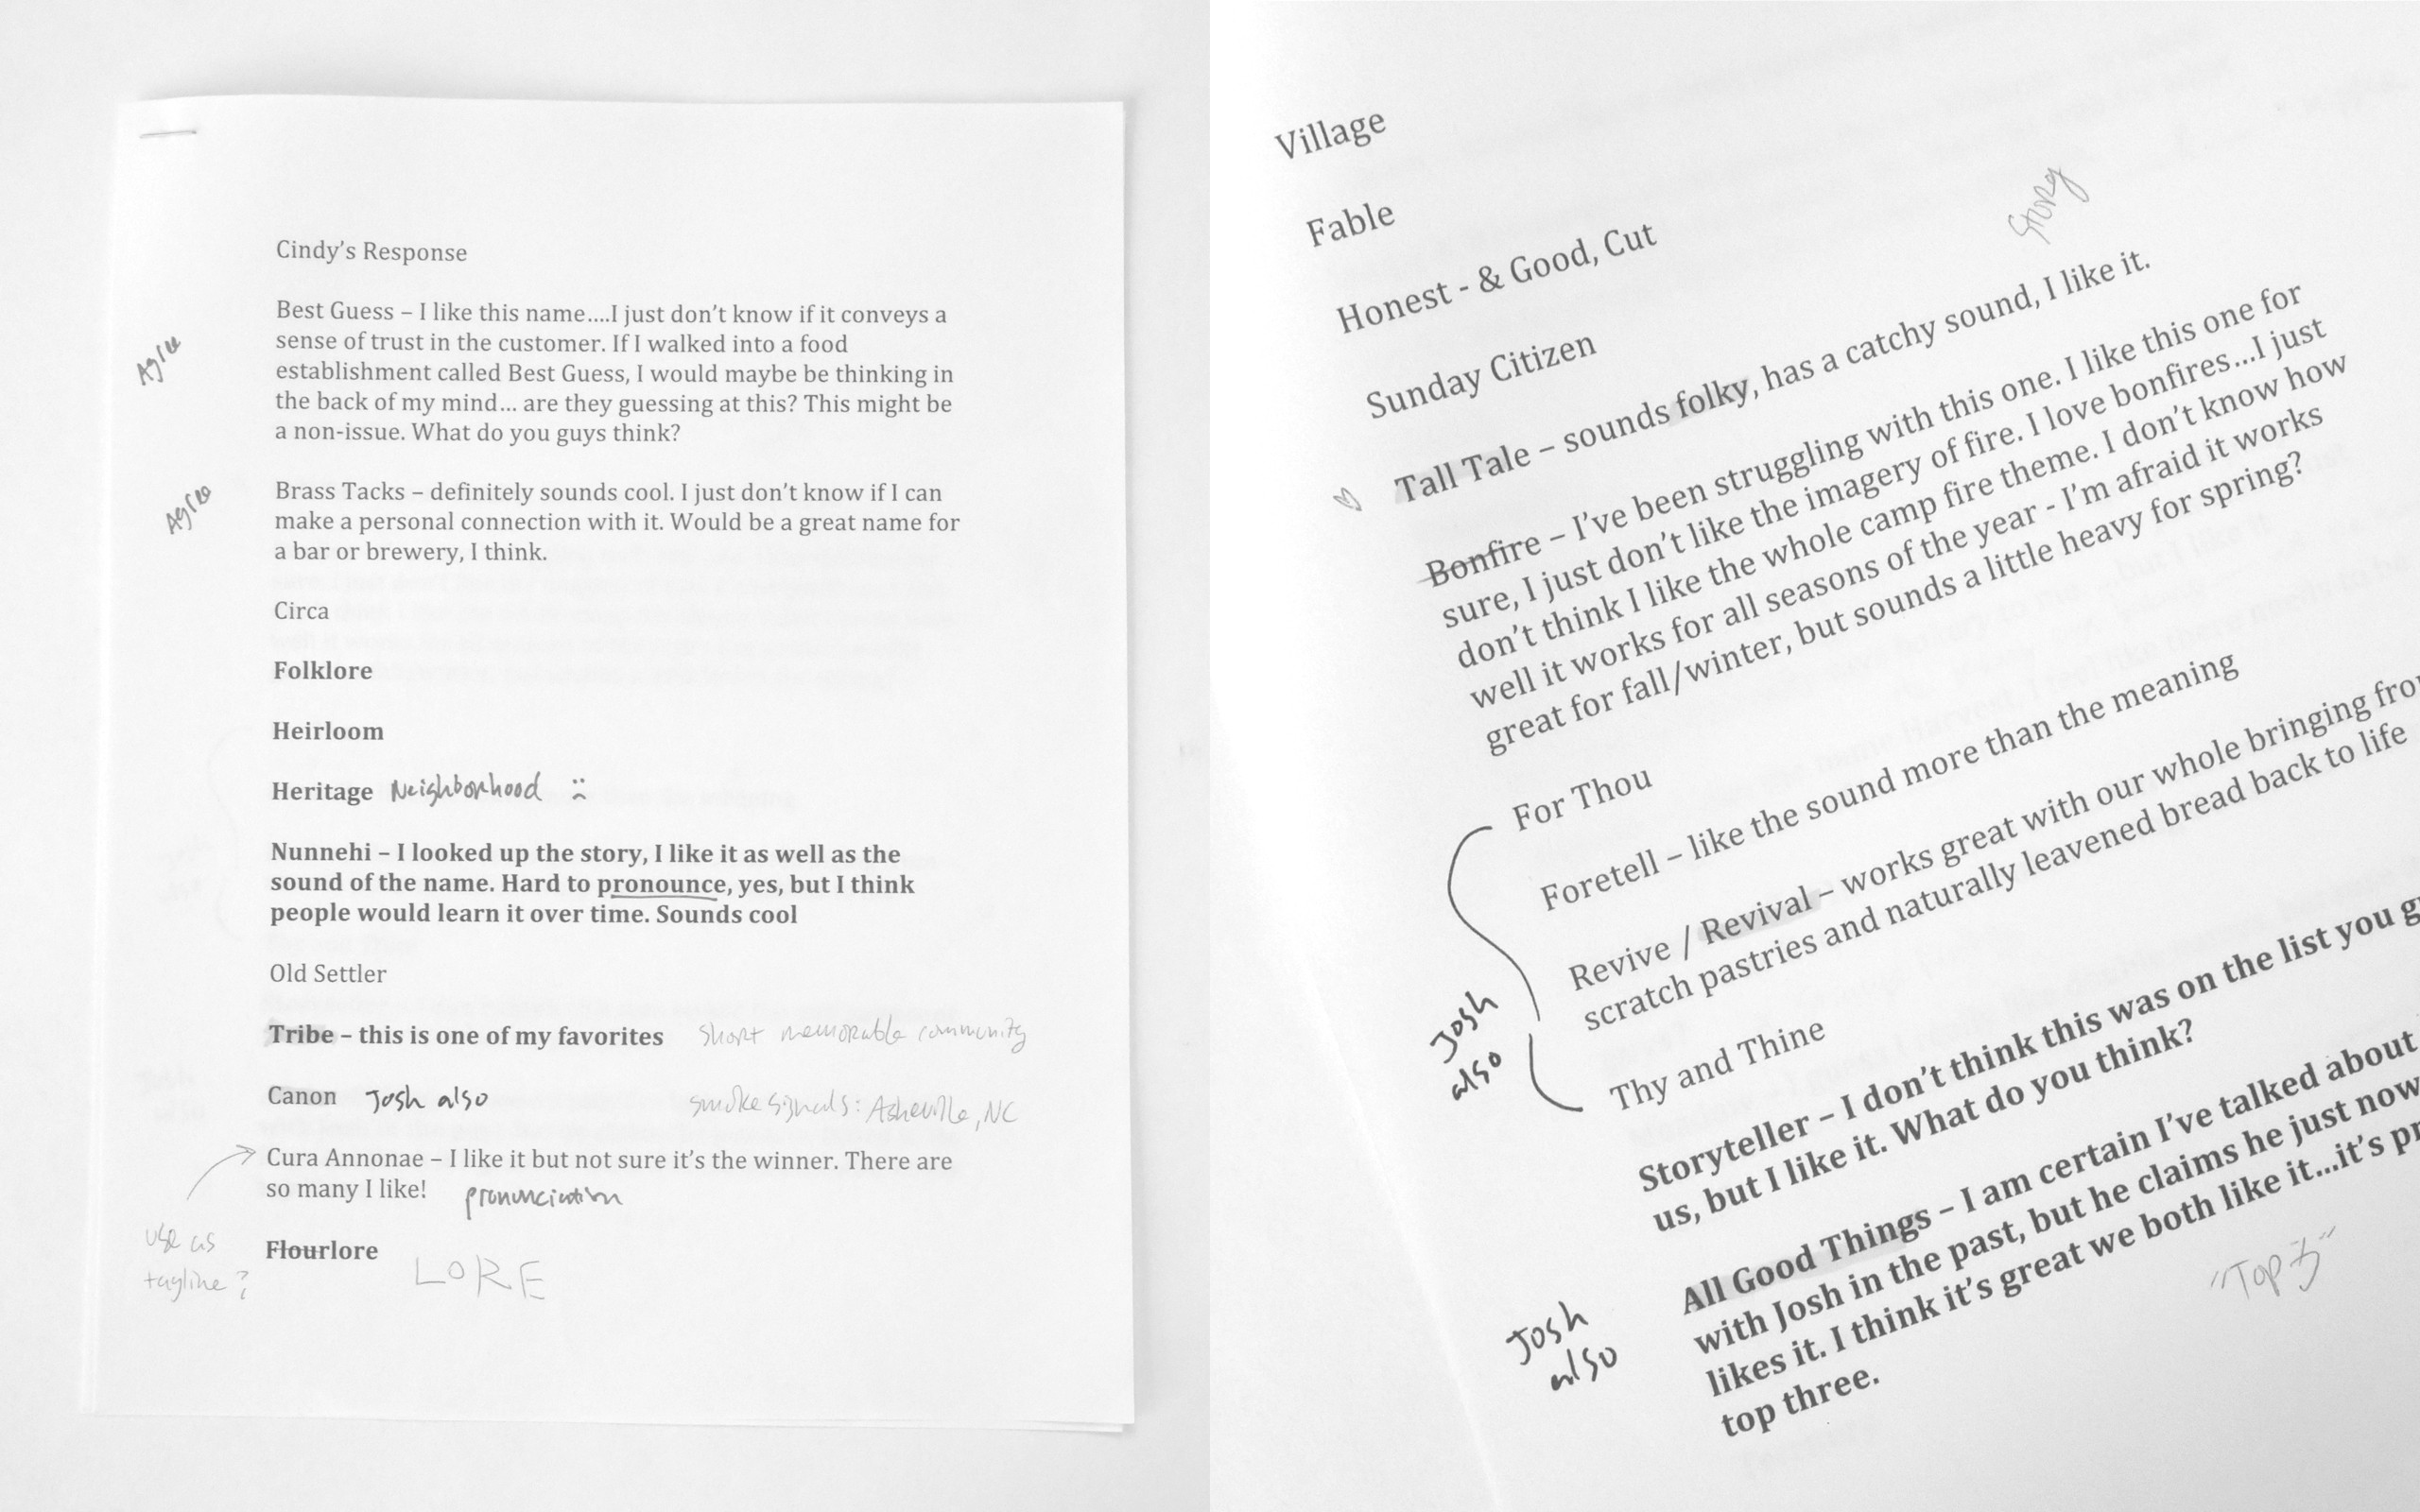 Cindy's Response
Best Guess – I like this name....I just don't know if it conveys a
sense of trust in the customer. If I walked into a food
establishment called Best Guess, I would maybe be thinking in
the back of my mind... are they guessing at this? This might be
a non-issue. What do you guys think?
Agree
Brass Tacks – definitely sounds cool. I just don't know if I can
make a personal connection with it. Would be a great name for
a bar or brewery, I think.
Agree
Circa
Folklore
Heirloom
Heritage Neighborhood
Nunnehi – I looked up the story, I like it as well as the
sound of the name. Hard to pronounce, yes, but I think
people would learn it over time. Sounds cool
Old Settler
Tribe – this is one of my favorites short memorable community
Canon Josh also smoke signals: Asheville, NC
Cura Annonae – I like it but not sure it's the winner. There are
so many I like! pronunciation
use as
tagline?
Flourlore LORE
Village
Fable
Honest - & Good, Cut
Sunday Citizen
Story
Tall Tale – sounds folky, has a catchy sound, I like it.
Bonfire – I've been struggling with this one. I like this one for
sure, I just don't like the imagery of fire. I love bonfires...I just
don't think I like the whole camp fire theme. I don't know how
well it works for all seasons of the year - I'm afraid it works
great for fall/winter, but sounds a little heavy for spring?
For Thou
Foretell – like the sound more than the meaning
Revive / Revival – works great with our whole bringing
scratch pastries and naturally leavened bread back to life
Thy and Thine
Josh
also
Storyteller – I don't think this was on the list you
us, but I like it. What do you think?
All Good Things – I am certain I've talked about
with Josh in the past, but he claims he just now
likes it. I think it's great we both like it...it's
top three.
Josh
also
"Top 3"